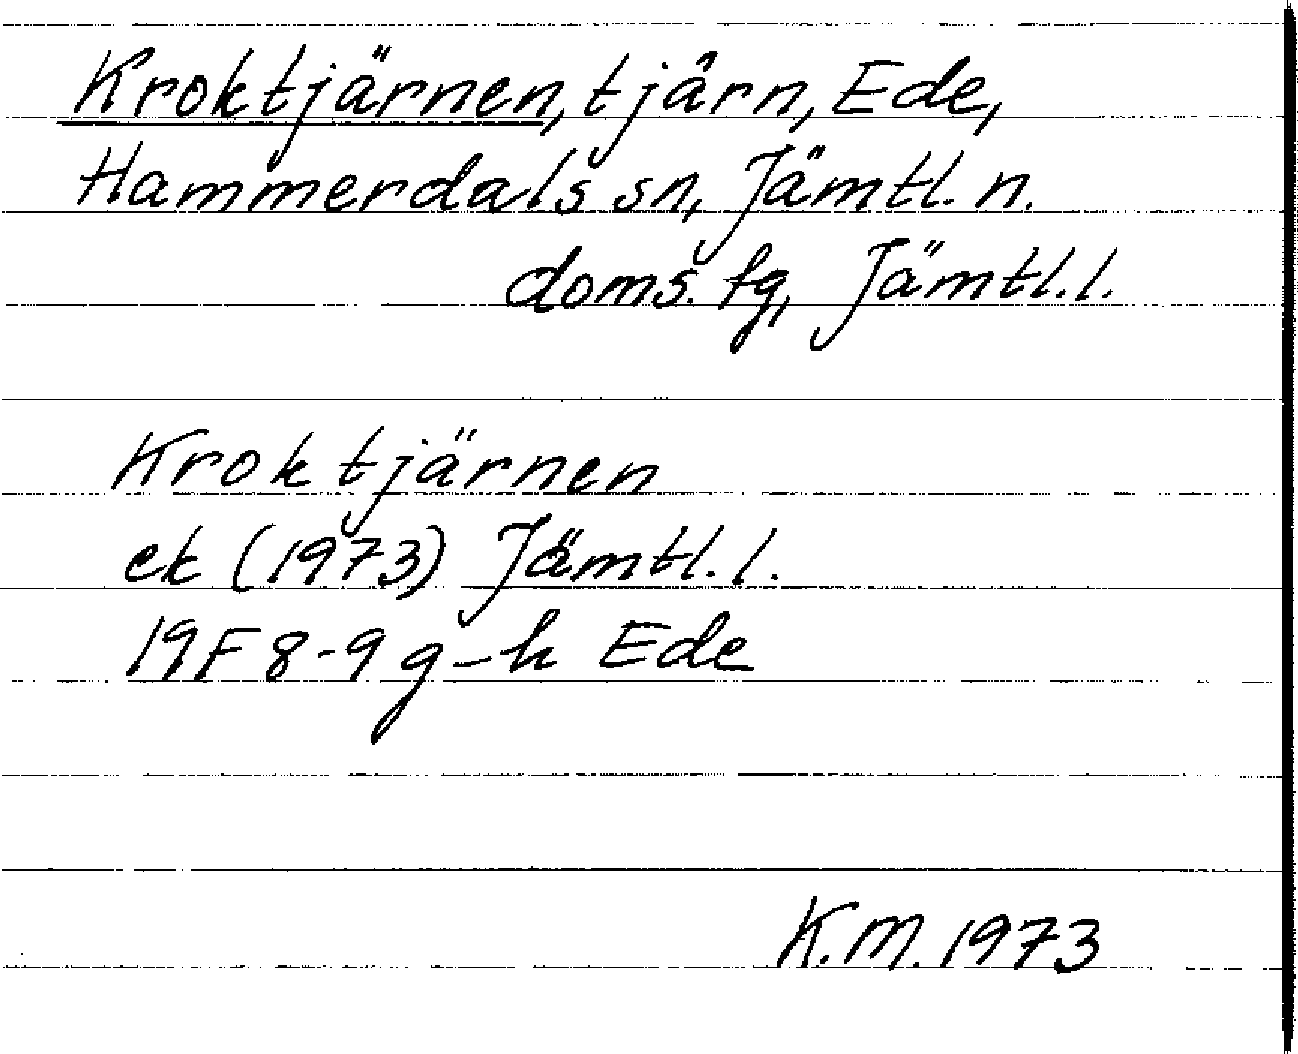 Kroktjärnen, tjärn, Ede,
Hammerdals sn, Jämtl. n.
doms. fg, Jämtl. l.
Kroktjärnen
ek (1973) Jämtl. l.
19F 8-9 g-h Ede
K.M. 1973